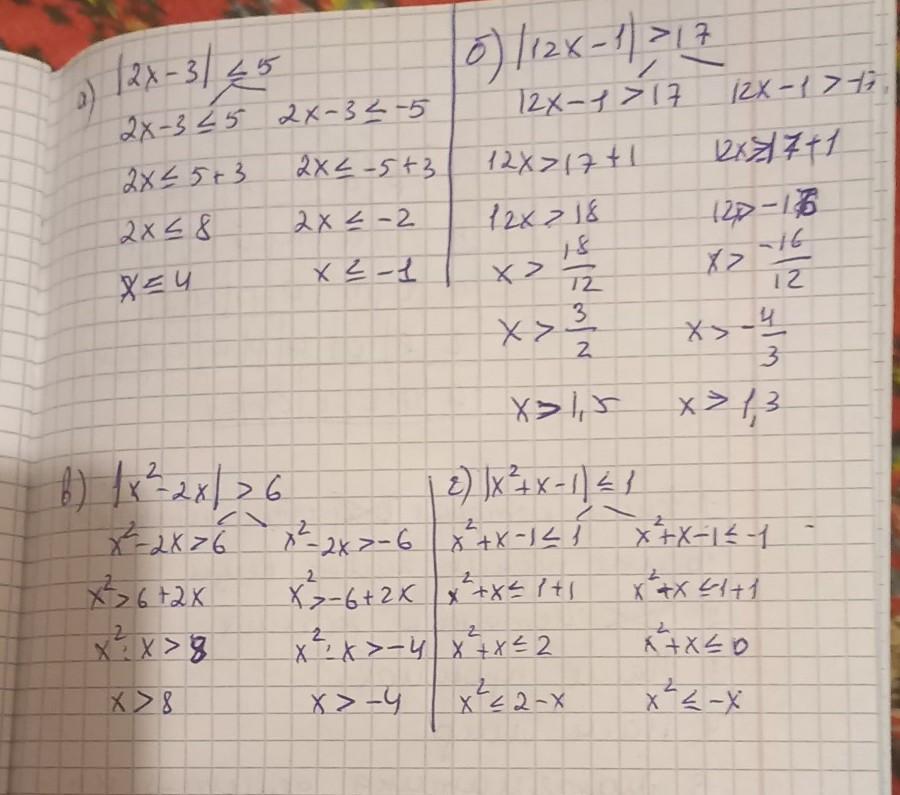 а) |2x-3| ≤ 5
2x-3 ≤ 5 2x-3 ≤ -5
2x ≤ 5+3 2x ≤ -5+3
2x ≤ 8 2x ≤ -2
x ≤ 4 x ≤ -1
б) |12x-1| > 17
12x-1 > 17 12x-1 > -17
12x > 17+1 12x > 17+1
12x > 18 12 > -16
x > 18/12 x > -16/12
x > 3/2 x > -4/3
x > 1,5 x > 1,3
в) |x²-2x| > 6
x²-2x > 6 x²-2x > -6
x² > 6+2x x² > -6+2x
x² : x > 8 x² : x > -4
x > 8 x > -4
г) |x²+x-1| ≤ 1
x²+x-1 ≤ 1 x²+x-1 ≤ -1
x²+x ≤ 1+1 x²+x ≤ -1+1
x²+x ≤ 2 x²+x ≤ 0
x² ≤ 2-x x² ≤ -x